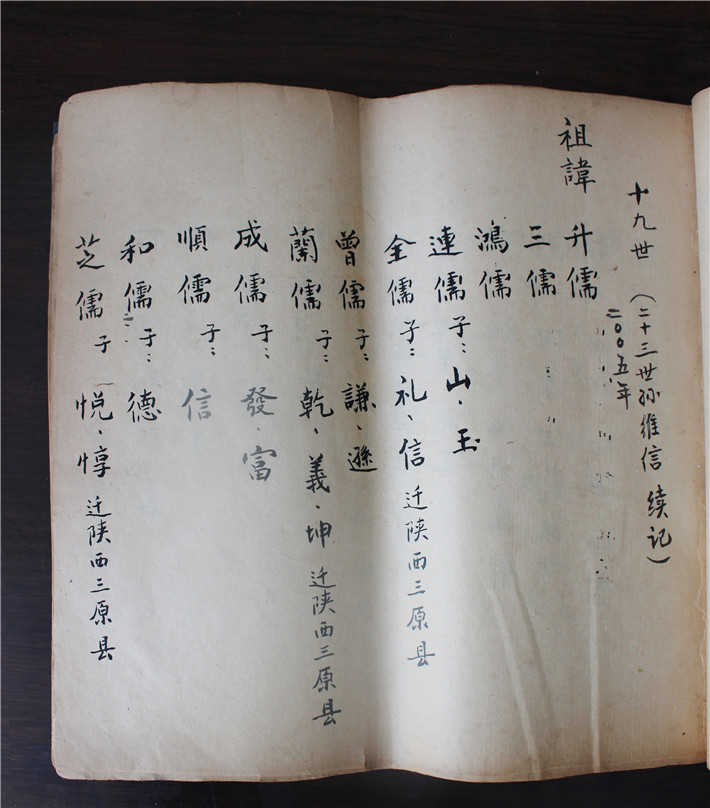 十九世（二十三世孙維信 续记）
二00五年
祖諱 升儒
三儒
鴻儒
連儒 子：山、玉
全儒 子：礼、信 迁陕西三原县
曾儒 子：謙、遜
蘭儒 子：乾、義、坤 迁陕西三原县
成儒 子：發、富
順儒 子：信
和儒 子：德
芝儒 子 悦、惇 迁陕西三原县